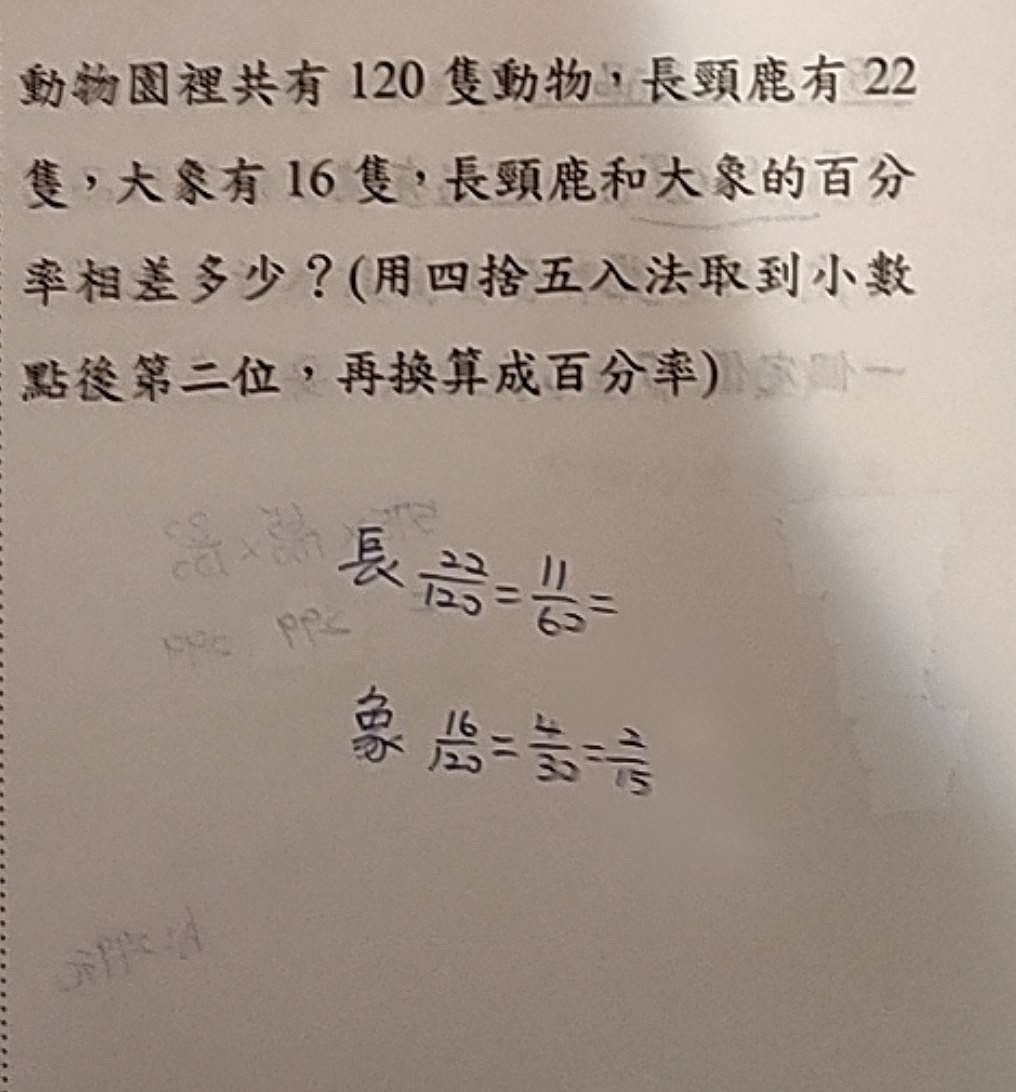 動物園裡共有 120 隻動物，長頸鹿有 22
隻，大象有 16 隻，長頸鹿和大象的百分
率相差多少？(用四捨五入法取到小數
點後第二位，再換算成百分率)
長 22/120 = 11/60 =
象 16/120 = 4/30 = 2/15